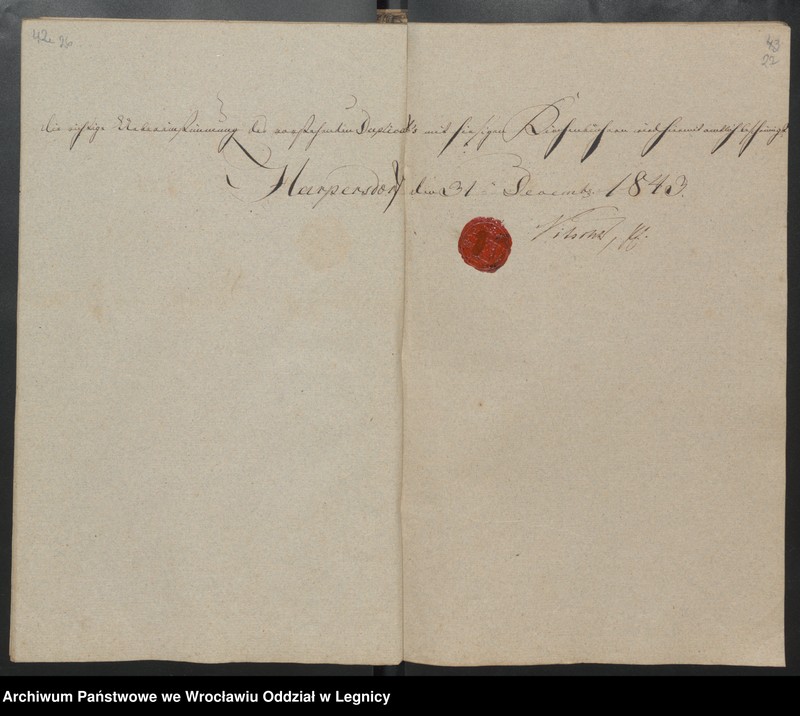 42 96
43
22
die richtige Uebereinstimmung des vorstehenden Duplicat's mit hiesigen Kirchenbüchern wird hiermit amtlich bescheinigt
Harpersdorf den 31 Decembr. 1843.
Archiwum Państwowe we Wrocławiu Oddział w Legnicy